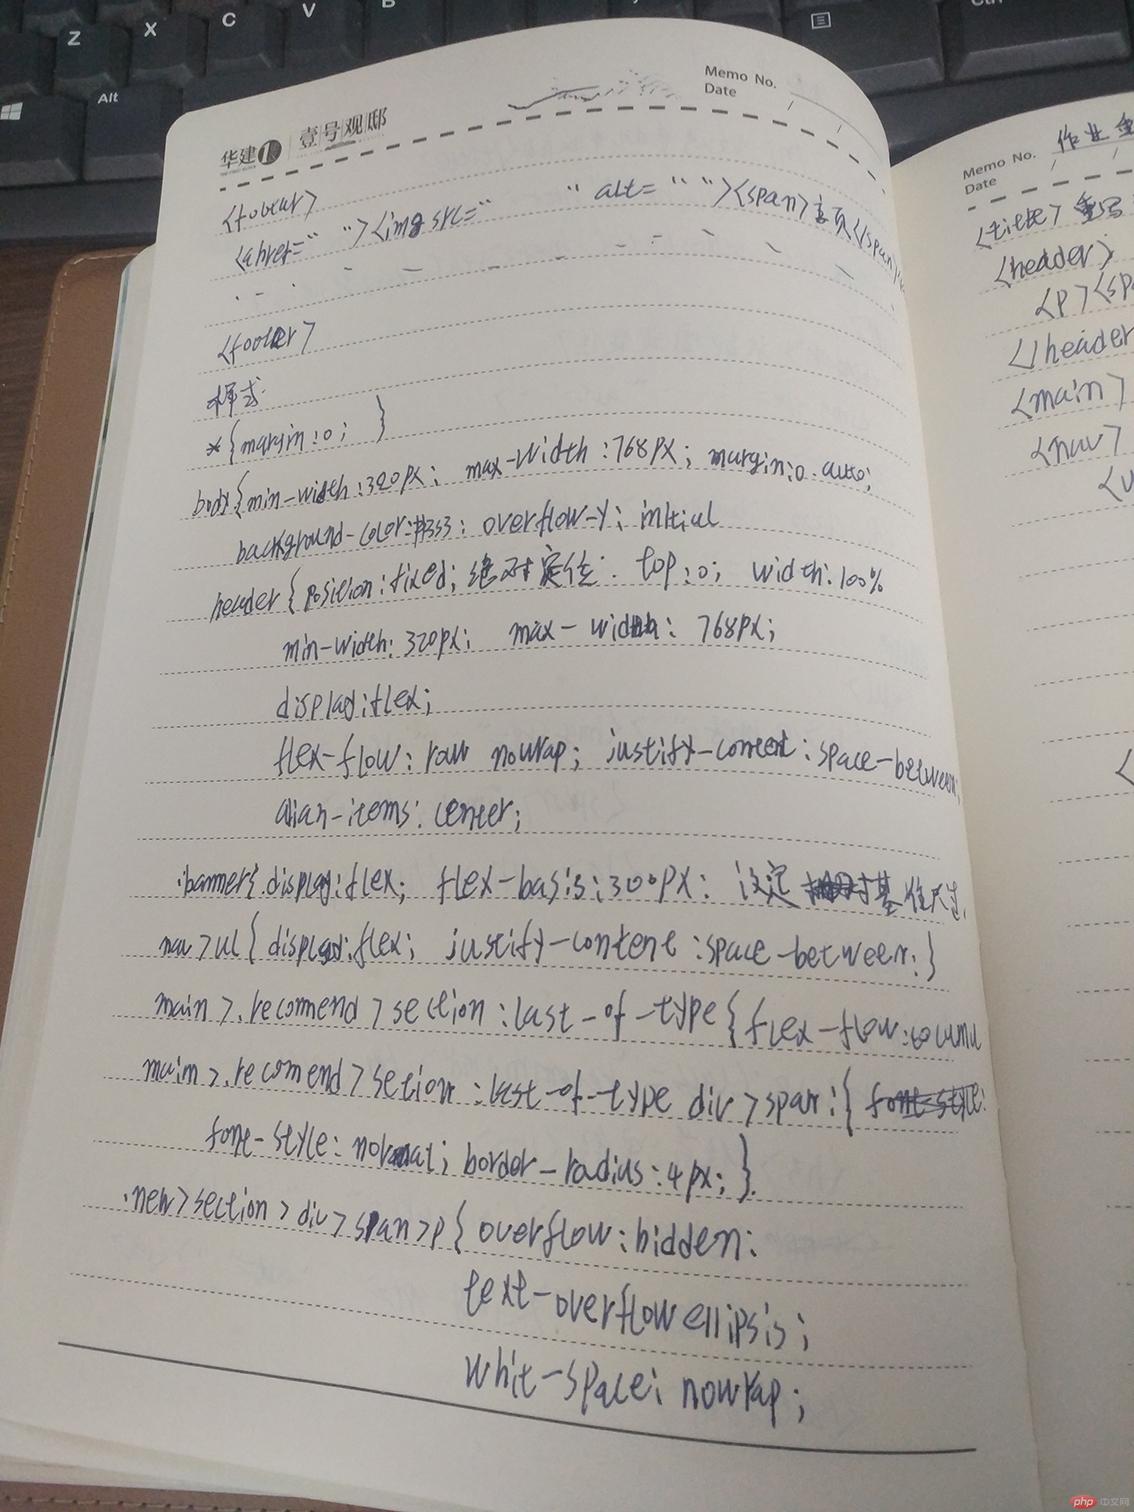 Z X C V B
Alt
Ctrl
华建1 壹号观邸
Memo No.
Date
<footer>
<a href=" "><img src=" " alt=" "><span>主页</span>
<footer>
样式
*{margin:0; }
body{min-width:320px; max-width:768px; margin:0 auto;
background-color:#353; overflow-y: initial
header{position:fixed; 绝对定位. top:0; width:100%
min-width:320px; max-width: 768px;
display:flex;
flex-flow: row nowrap; justify-content:space-between;
align-items: center;
.banner{display:flex; flex-basis:300px: 设定 基准尺寸.
nav>ul{display:flex; justify-content:space-between;}
main>.recomend>section:last-of-type{flex-flow:column
main>.recomend>setion:last-of-type div>span:{ font-style:
font-style: normal; border-radius:4px;}.
.new>section>div>span>p{overflow:hidden:
text-overflow ellipsis;
whit-space: nowrap;
Memo No. 作业
Date
<title>重写
<header>
<p><sp
</header
<main>
<nav>
<u
<
php 中文网